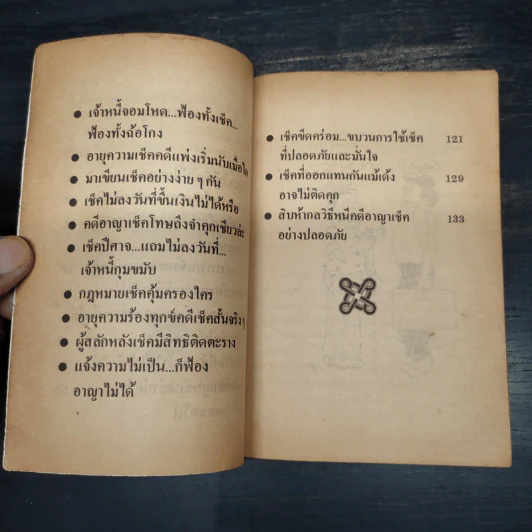 ● เจ้าหนี้จอมโหด...ฟ้องทั้งเช็ค...
ฟ้องทั้งฉ้อโกง
● อายุความเช็คคดีแพ่งเริ่มนับเมื่อใด
● มาเขียนเช็คอย่างง่าย ๆ กัน
● เช็คไม่ลงวันที่ขึ้นเงินไม่ได้หรือ
● คดีอาญาเช็คโทษถึงจำคุกเชียวล่ะ
● เช็คปีศาจ...แถมไม่ลงวันที่...
เจ้าหนี้กุมขมับ
● กฎหมายเช็คคุ้มครองใคร
● อายุความร้องทุกข์คดีเช็คสั้นจริง ๆ
● ผู้สลักหลังเช็คมีสิทธิติดตะราง
● แจ้งความไม่เป็น...ก็ฟ้อง
อาญาไม่ได้
● เช็คขีดคร่อม...ขบวนการใช้เช็ค 121
ที่ปลอดภัยและมั่นใจ
● เช็คที่ออกแทนกันแม้เด้ง 129
อาจไม่ติดคุก
● สิบห้ากลวิธีหนีคดีอาญาเช็ค 133
อย่างปลอดภัย